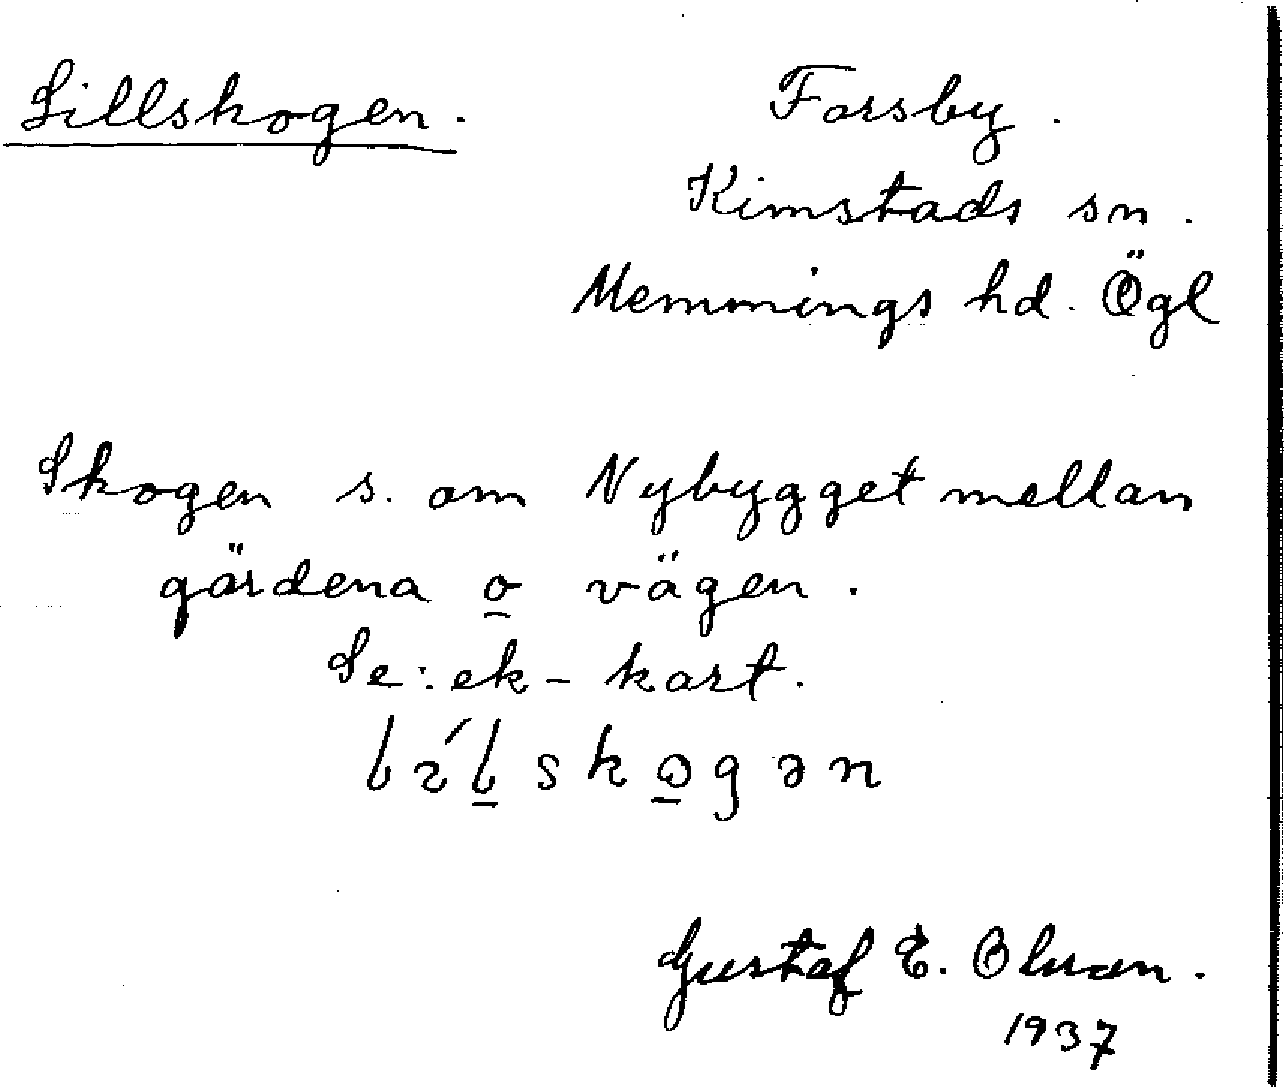 Lillskogen. Forsby.
Kimstads sn.
Memmings hd. Ögl
Skogen s. om Nybygget mellan
gärdena o vägen.
Se: ek-kart.
lílskogən
Gustaf E. Olsson.
1937